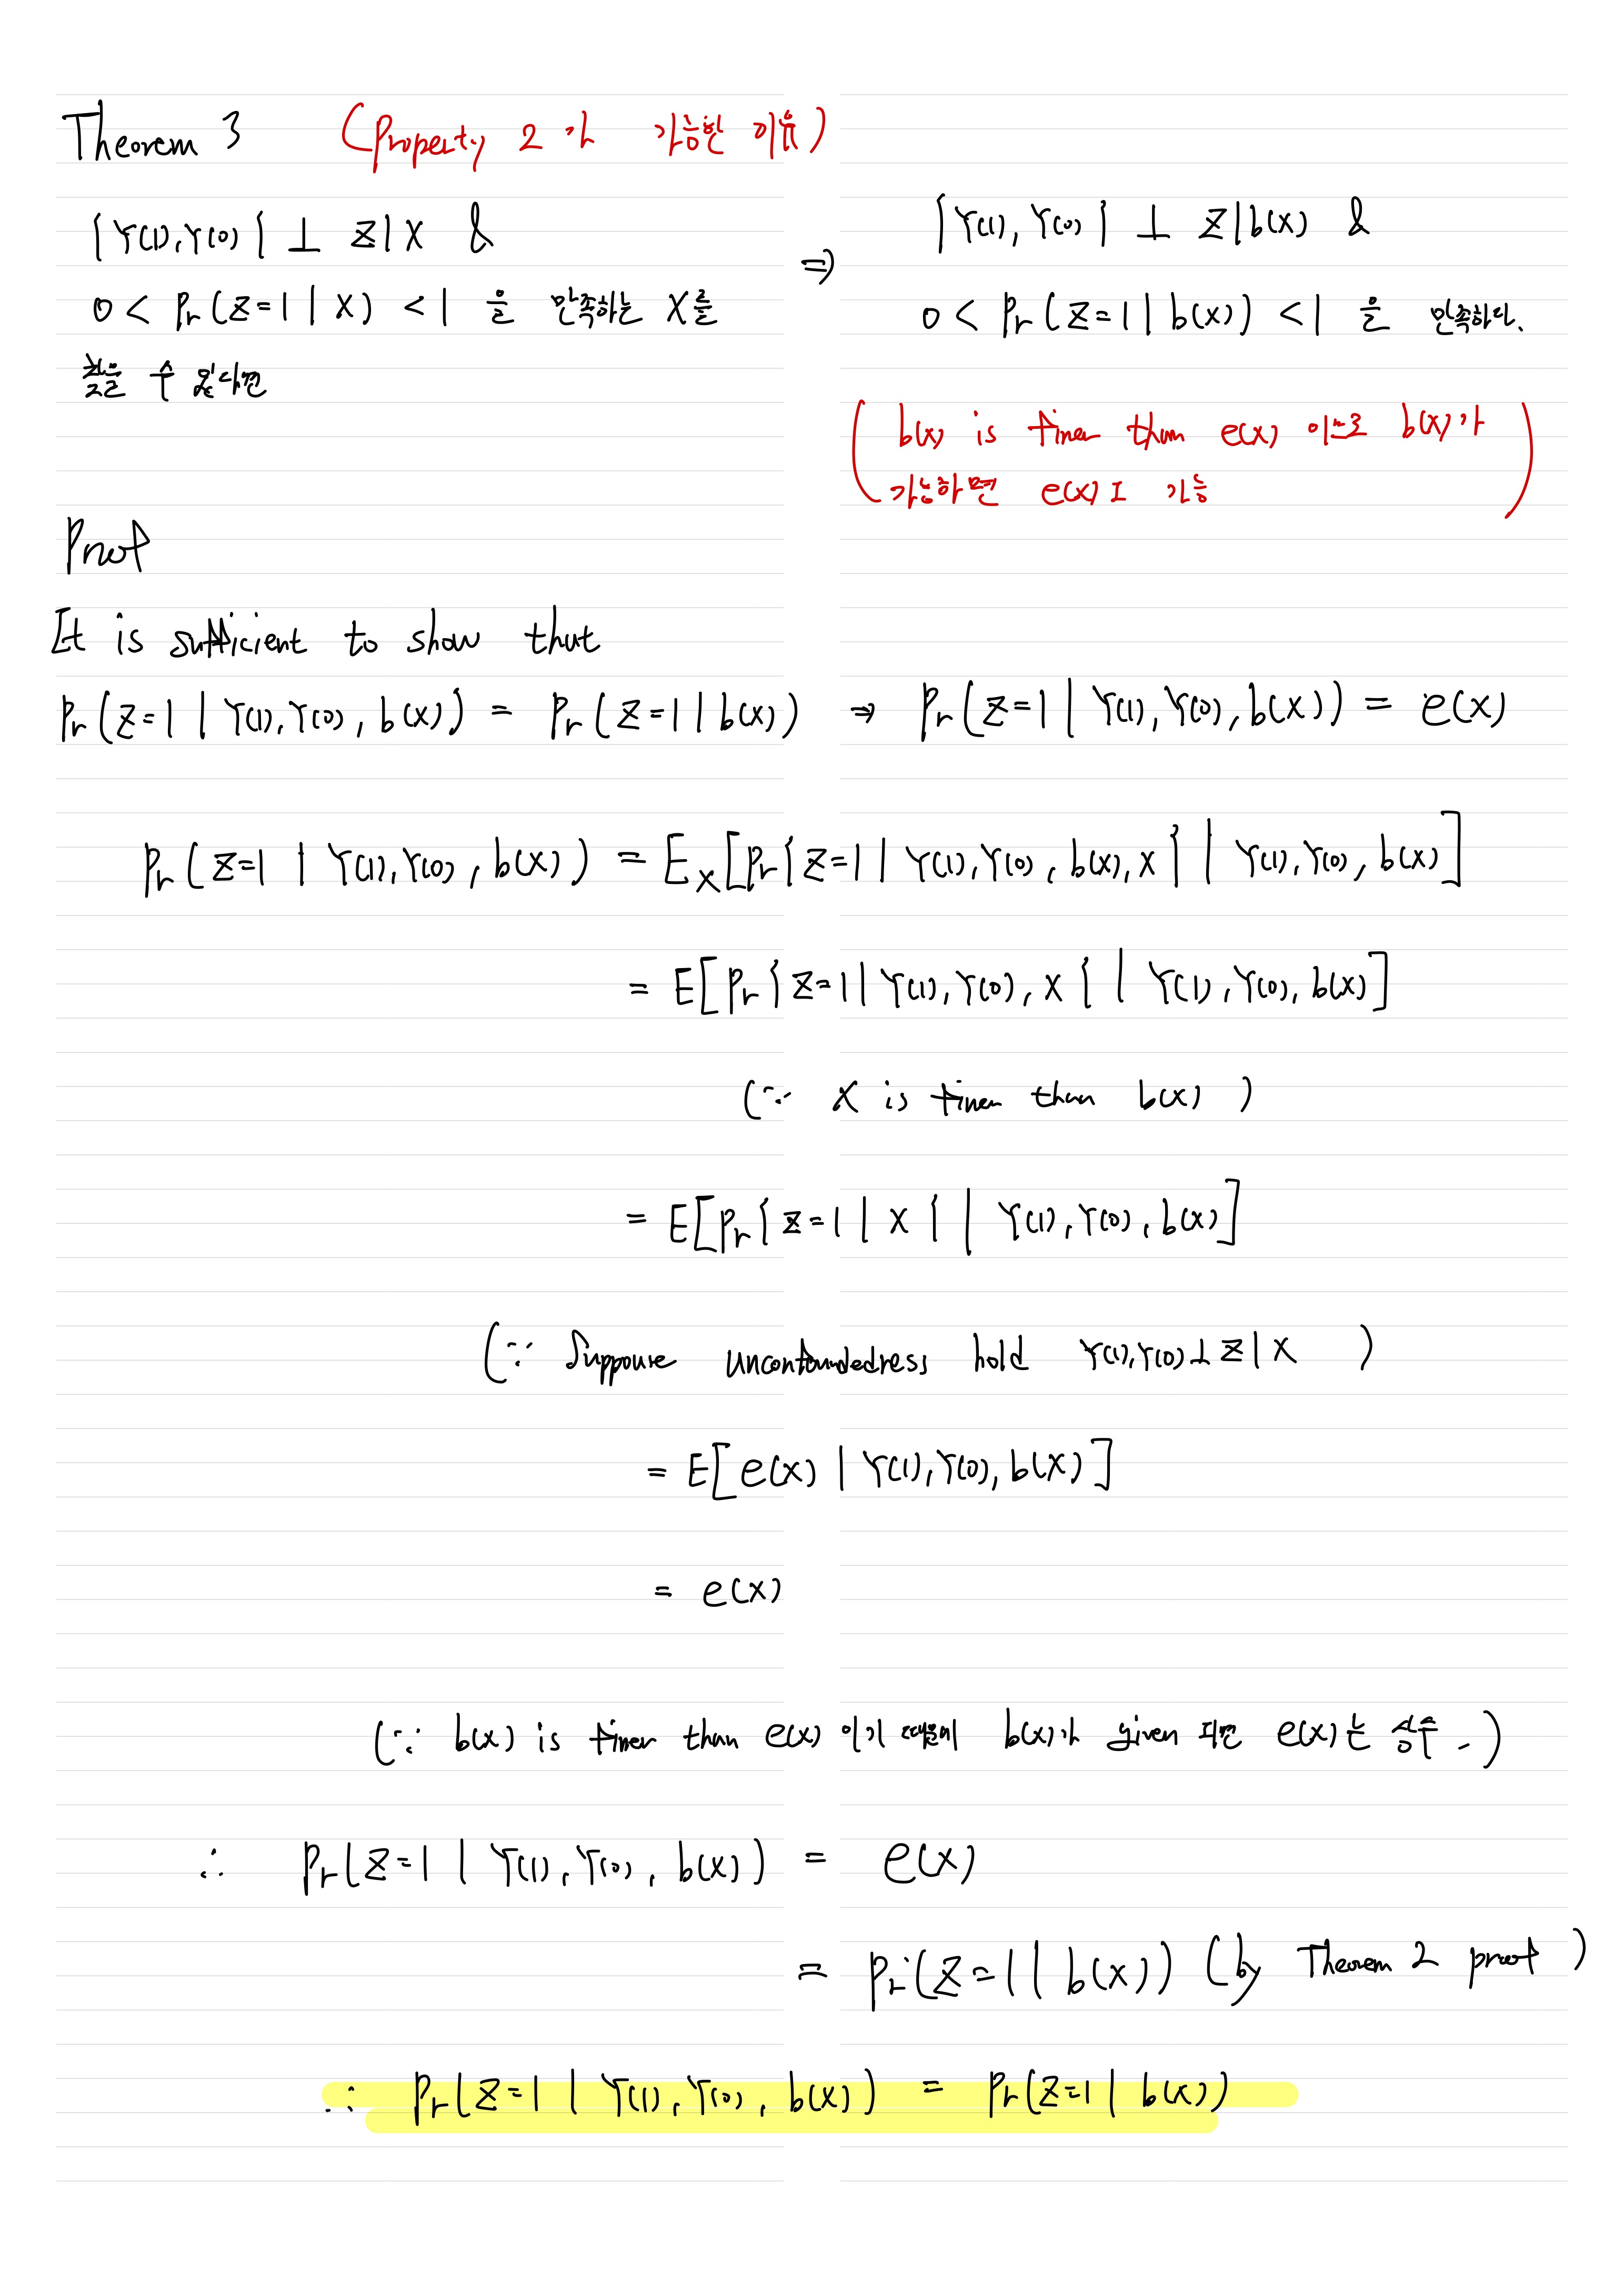 Theorem 3 (Property 2 가 가능한 이유)
{Y(1), Y(0)} ⊥ Z|X &
0 < Pr(Z=1 | X) < 1 을 만족하는 X를
찾을 수 있다면
⇒
{Y(1), Y(0)} ⊥ Z|b(X) &
0 < Pr(Z=1 | b(X)) < 1 을 만족하다.
( b(X) is finer than e(X) 이므로 b(X)가
가능하면 e(X)도 가능 )
Proof
It is sufficient to show that
Pr(Z=1 | Y(1), Y(0), b(X)) = Pr(Z=1 | b(X)) ⇒ Pr(Z=1 | Y(1), Y(0), b(X)) = e(X)
Pr(Z=1 | Y(1), Y(0), b(X)) = E_X[Pr{Z=1 | Y(1), Y(0), b(X), X} | Y(1), Y(0), b(X)]
= E[Pr{Z=1 | Y(1), Y(0), X} | Y(1), Y(0), b(X)]
(∵ X is finer than b(X) )
= E[Pr{Z=1 | X} | Y(1), Y(0), b(X)]
(∵ Suppose unconfoundedness hold Y(1), Y(0) ⊥ Z|X )
= E[e(X) | Y(1), Y(0), b(X)]
= e(X)
(∵ b(X) is finer than e(X) 이기 때문에 b(X)가 given 되면 e(X)는 상수.)
∴ Pr(Z=1 | Y(1), Y(0), b(X)) = e(X)
= Pr(Z=1 | b(X)) (by Theorem 2 proof )
∴ Pr(Z=1 | Y(1), Y(0), b(X)) = Pr(Z=1 | b(X))